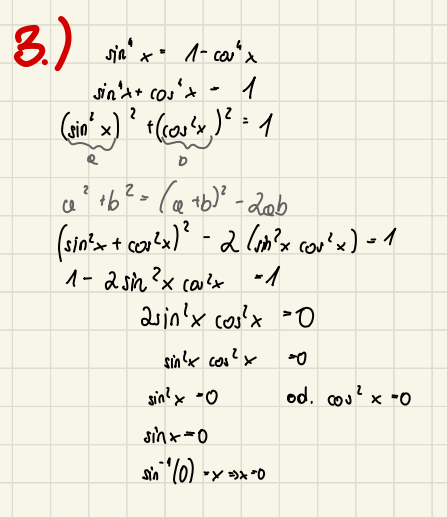 3.)
sin⁴ x = 1 - cos⁴ x
sin⁴x + cos⁴ x = 1
(sin² x)² + (cos²x)² = 1
a b
a² + b² = (a + b)² - 2ab
(sin²x + cos²x)² - 2 (sin²x cos²x) = 1
1 - 2 sin²x cos²x = 1
2sin²x cos²x = 0
sin²x cos²x = 0
sin²x = 0 od. cos²x = 0
sin x = 0
sin⁻¹(0) = x ⇒ x = 0